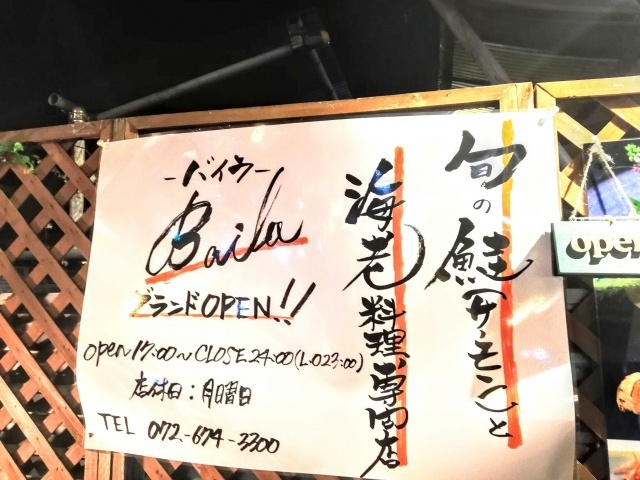 旬の鮭(サーモン)と
海老料理専門店
-バイラ-
Baila
グランドOPEN!!
open 17:00〜CLOSE 24:00(L.O23:00)
店休日：月曜日
TEL 072-674-3300
open